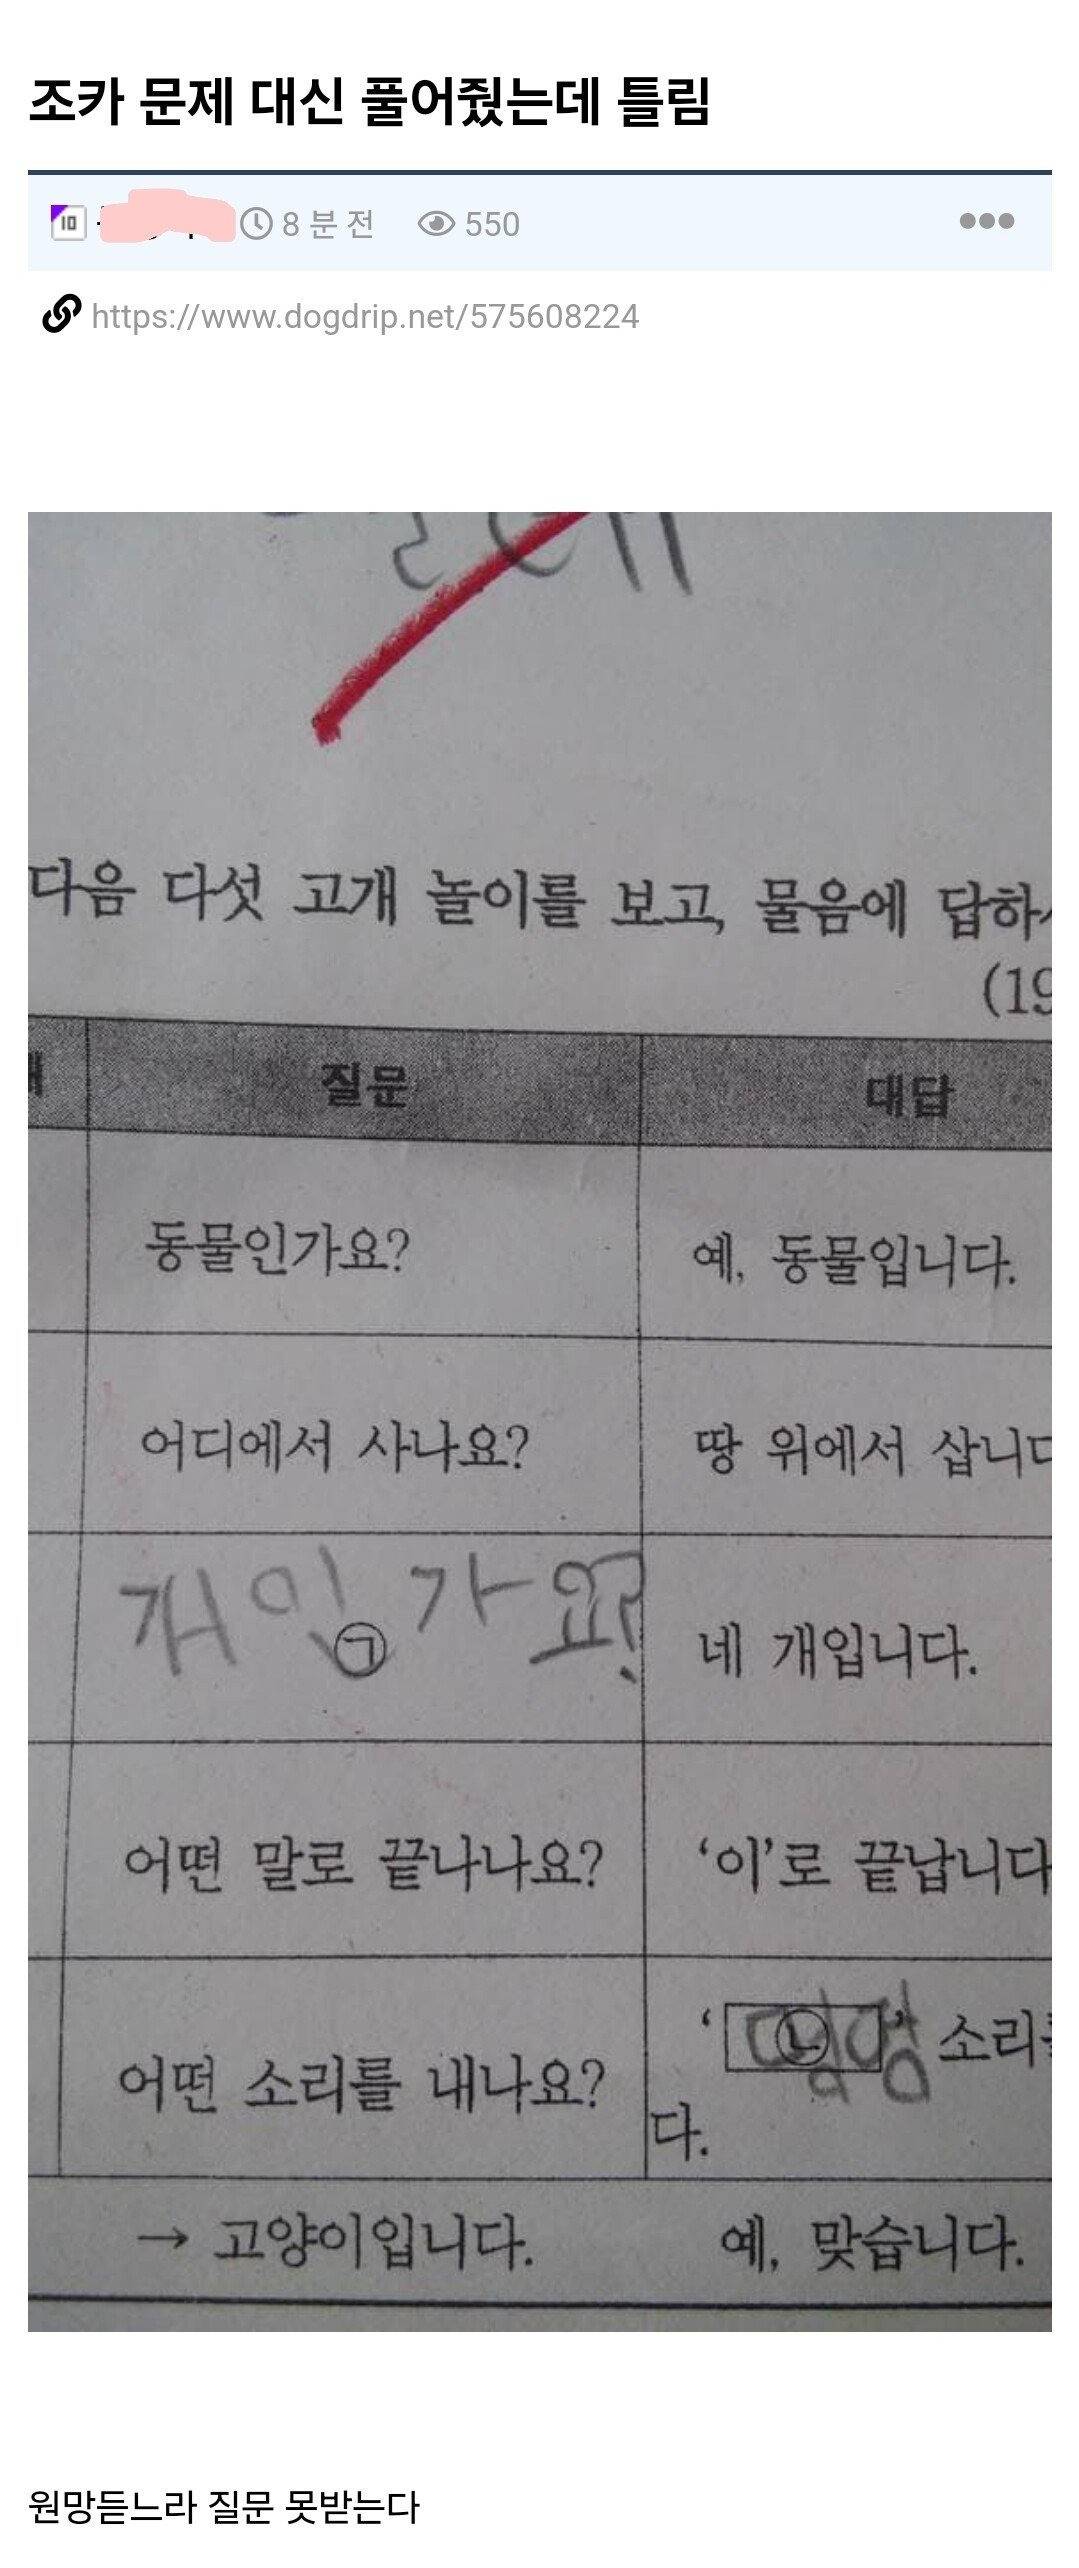 조카 문제 대신 풀어줬는데 틀림
10
8 분 전 550
https://www.dogdrip.net/575608224
다음 다섯 고개 놀이를 보고, 물음에 답하
(19
질문 대답
동물인가요? 예, 동물입니다.
어디에서 사나요? 땅 위에서 삽니다
개인가요? ㉠ 네 개입니다.
어떤 말로 끝나나요? ‘이’로 끝납니다
어떤 소리를 내나요? ‘㉡’ 소리를
멍멍
다.
→ 고양이입니다. 예, 맞습니다.
원망듣느라 질문 못받는다